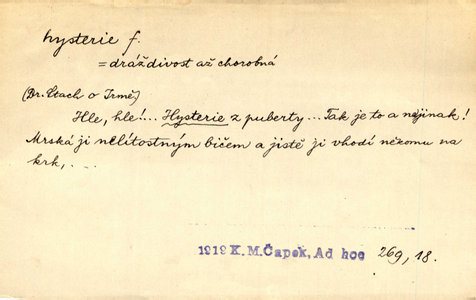 hysterie f.
= dráždivost až chorobná
(Dr. Stach o Irmě)
Hle, hle!... Hysterie z puberty... Tak je to a nejinak!
Mrská ji nelítostným bičem a jistě ji vhodí někomu na
krk,...
1919 K. M. Čapek, Ad hoc 269, 18.